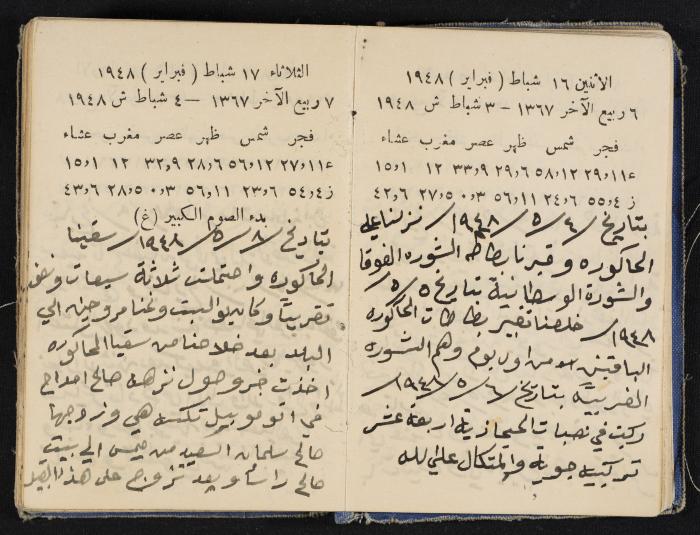 الأثنين ١٦ شباط ( فبراير ) ١٩٤٨
٦ ربيع الآخر ١٣٦٧ – ٣ شباط ش ١٩٤٨
فجر شمس ظهر عصر مغرب عشاء
ع ١١و٢٩ ١٢و٥٨ ٦و٢٩ ٩و٣٣ ١٢ ١و١٥
ز ٤و٥٥ ٦و٢٤ ١١و٥٦ ٣و٠ ٥و٢٧ ٦و٤٢
بتاريخ ٤/٥/١٩٤٨ نزلنا على
الحاكوره وقبرنا بطاطه الشوره الفوقا
والشورة الوسطانية بتاريخ ٥/٥/
١٩٤٨ خلصنا تقبير بطاطات الحاكوره
الباقيين من اول يوم وهم الشوره
الغربيه بتاريخ ٦/٥/١٩٤٨
ركبت في نصبات الحجازية اربعة عشر
تركيبه جوية والمتكال على الله
الثلاثاء ١٧ شباط ( فبراير ) ١٩٤٨
٧ ربيع الآخر ١٣٦٧ – ٤ شباط ش ١٩٤٨
فجر شمس ظهر عصر مغرب عشاء
ع ١١و٢٧ ١٢و٥٦ ٦و٢٨ ٩و٣٢ ١٢ ١و١٥
ز ٤و٥٤ ٦و٢٣ ١١و٥٦ ٣و٠ ٥و٢٨ ٦و٤٣
بدء الصوم الكبير (غ)
بتاريخ ٨/٥/١٩٤٨ سقينا
الحاكوره واحتملت ثلاثة سيعات ونص
تقريبا وكانوا البيت ونحنا مروحين الي
البلد بعد خلاصنا من سقيا الحاكوره
اخذت خبر وصول نزهة صالح امداح
في اتوموبيل تكسه هي وزوجها
صالح سلمان السعيد من حمص الي بيت
صالح رأسا وبعد تزوج على هذا